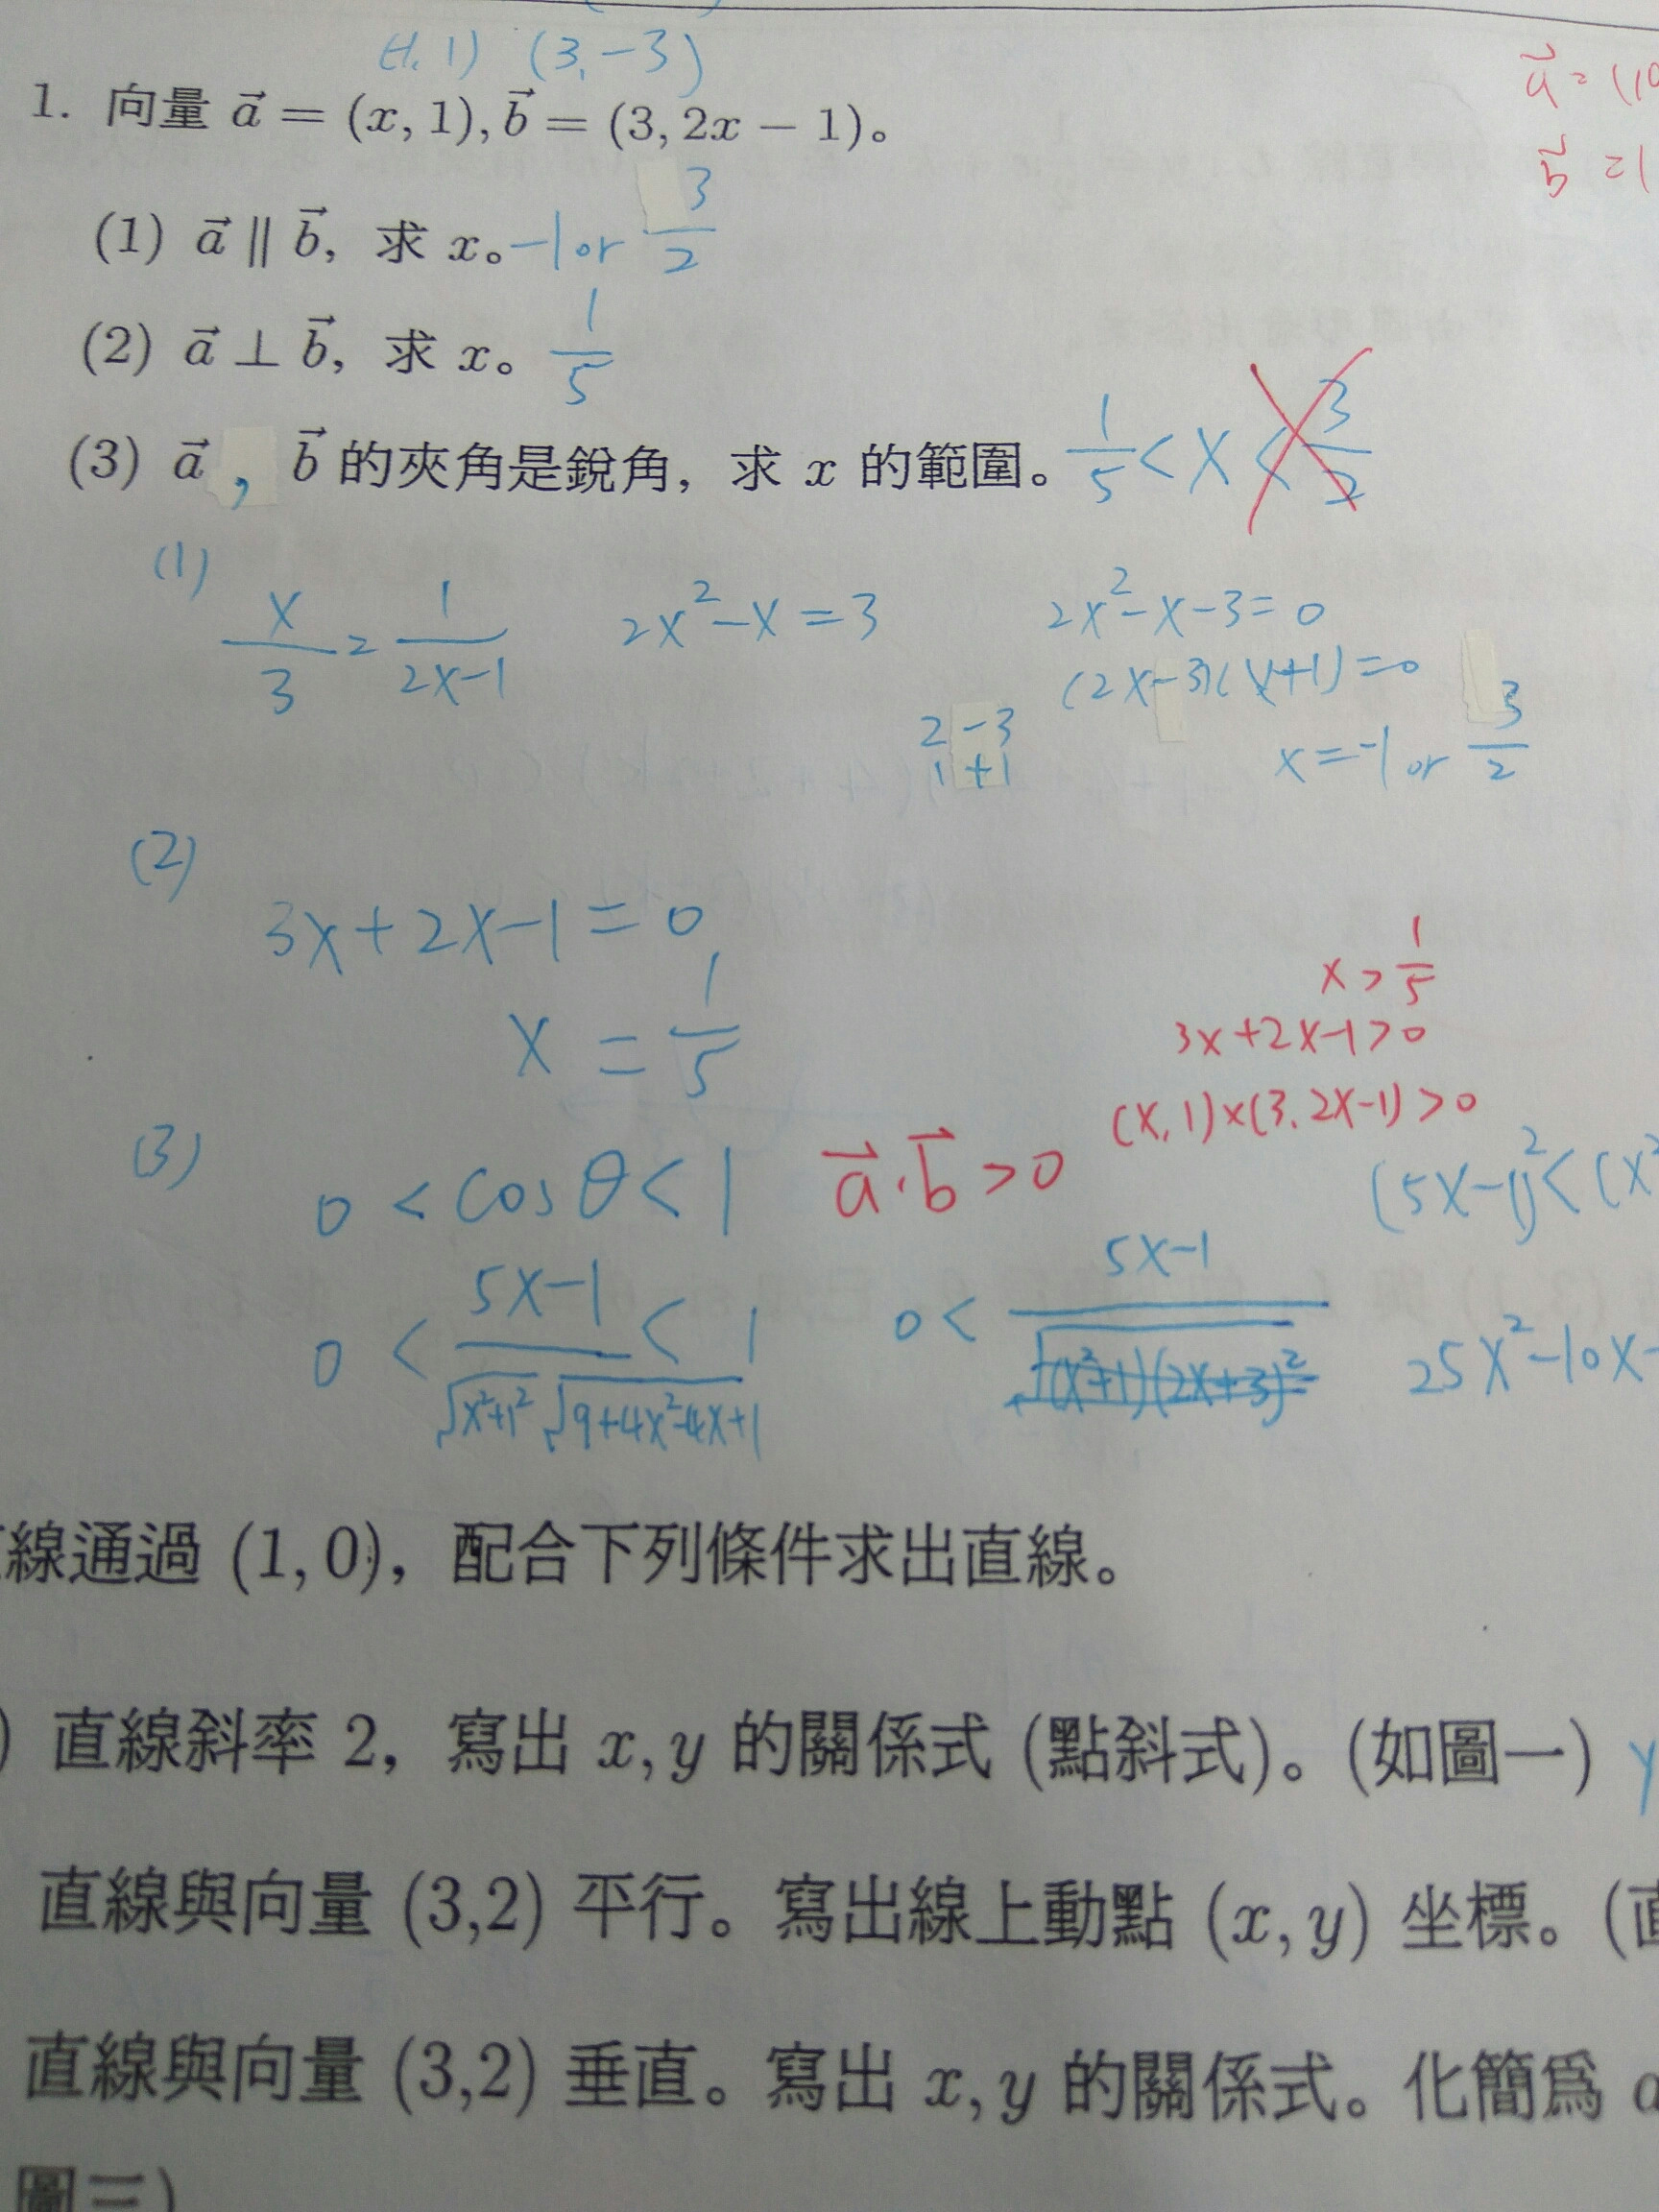 (-1, 1) (3, -3)
1. 向量 a⃗ = (x, 1), b⃗ = (3, 2x − 1)。
a⃗ = (10
b⃗ = (
(1) a⃗ ∥ b⃗, 求 x。 -1 or 3/2
(2) a⃗ ⊥ b⃗, 求 x。 1/5
(3) a⃗ , b⃗ 的夾角是銳角, 求 x 的範圍。 1/5 < x < 3/2
(1)
x/3 = 1/(2x-1) 2x²-x = 3 2x²-x-3 = 0
(2x-3)(x+1) = 0
2 -3
1 +1
x = -1 or 3/2
(2)
3x+2x-1 = 0
x = 1/5
x > 1/5
3x+2x-1 > 0
(x, 1)×(3, 2x-1) > 0
(3)
0 < cos θ < 1 a⃗·b⃗ > 0 (5x-1)² < (x²
0 < (5x-1)/(√(x²+1²) √(9+4x²-4x+1)) < 1 0 < (5x-1)/√((x²+1)(2x+3)²) 25x²-10x-
線通過 (1, 0), 配合下列條件求出直線。
) 直線斜率 2, 寫出 x, y 的關係式 (點斜式)。(如圖一) y
直線與向量 (3,2) 平行。寫出線上動點 (x, y) 坐標。(直
直線與向量 (3,2) 垂直。寫出 x, y 的關係式。化簡爲 a
圖三)